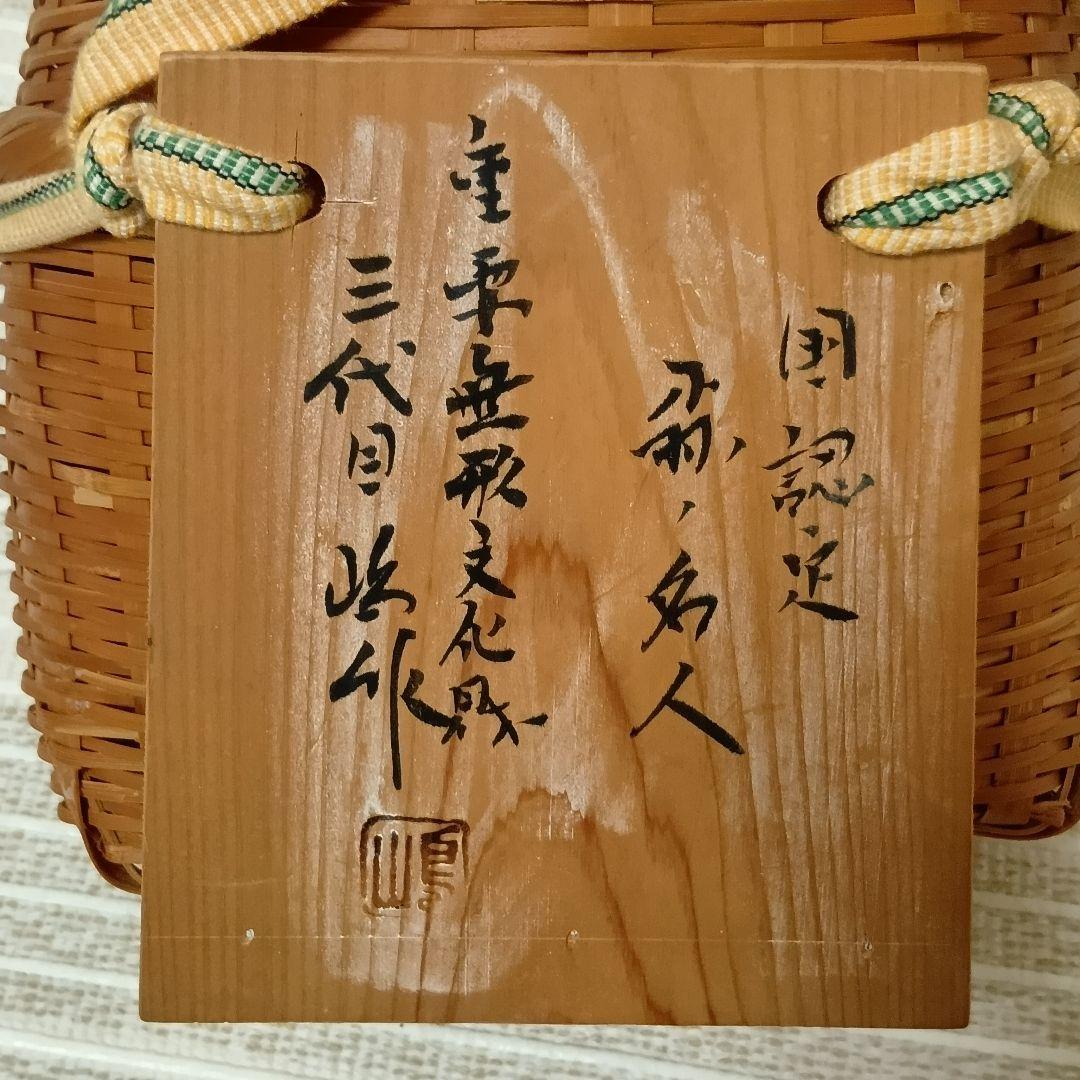 国認定
ノ名人
重要無形文化財
三代目嶋作
嶋